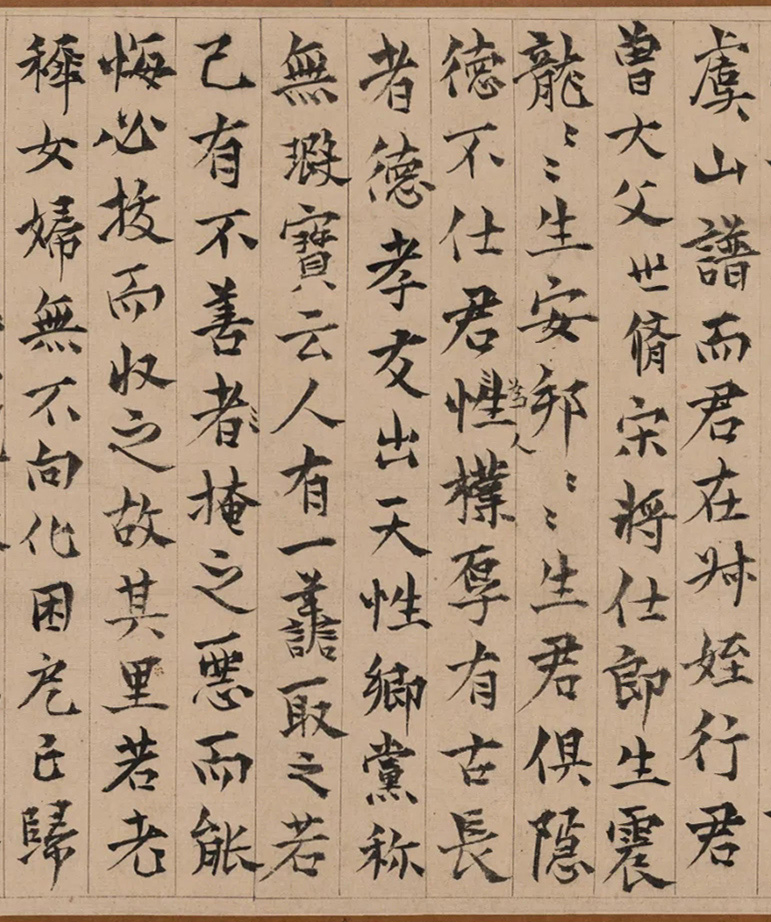 虞山譜而君在叔姪行君
曾大父世脩宋將仕郎生震
龍〻〻生安邦〻〻生君俱隱
德不仕君性為人樸厚有古長
者德孝友出天性鄉黨称
無瑕寶云人有一譱取之若
己有不善者掩之惡而能
悔必援而收之故其里若老
稺女婦無不向化困危亡歸